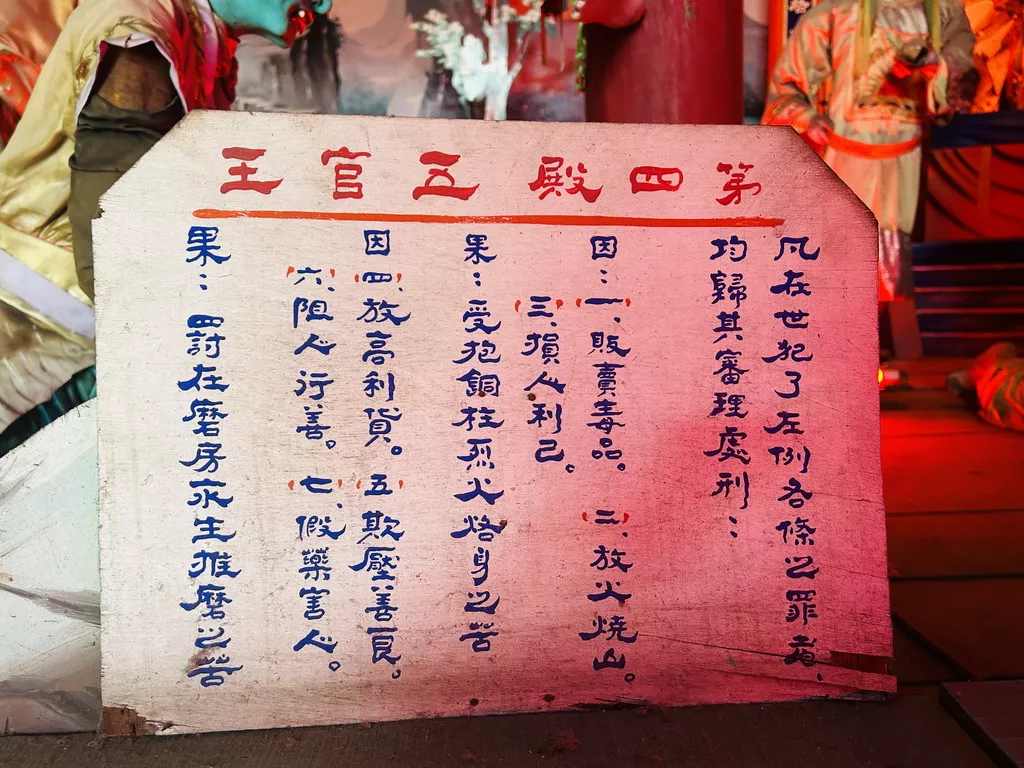 第四殿五官王
凡在世犯了左例各條之罪者、
均歸其審理處刑：
因：(一)、販賣毒品。(二)、放火燒山。
(三)、損人利己。
果：受抱銅柱烈火烙身之苦
因(四)、放高利貸。(五)、欺壓善良。
(六)、阻人行善。(七)、假藥害人。
果：四討在磨房永生推磨之苦